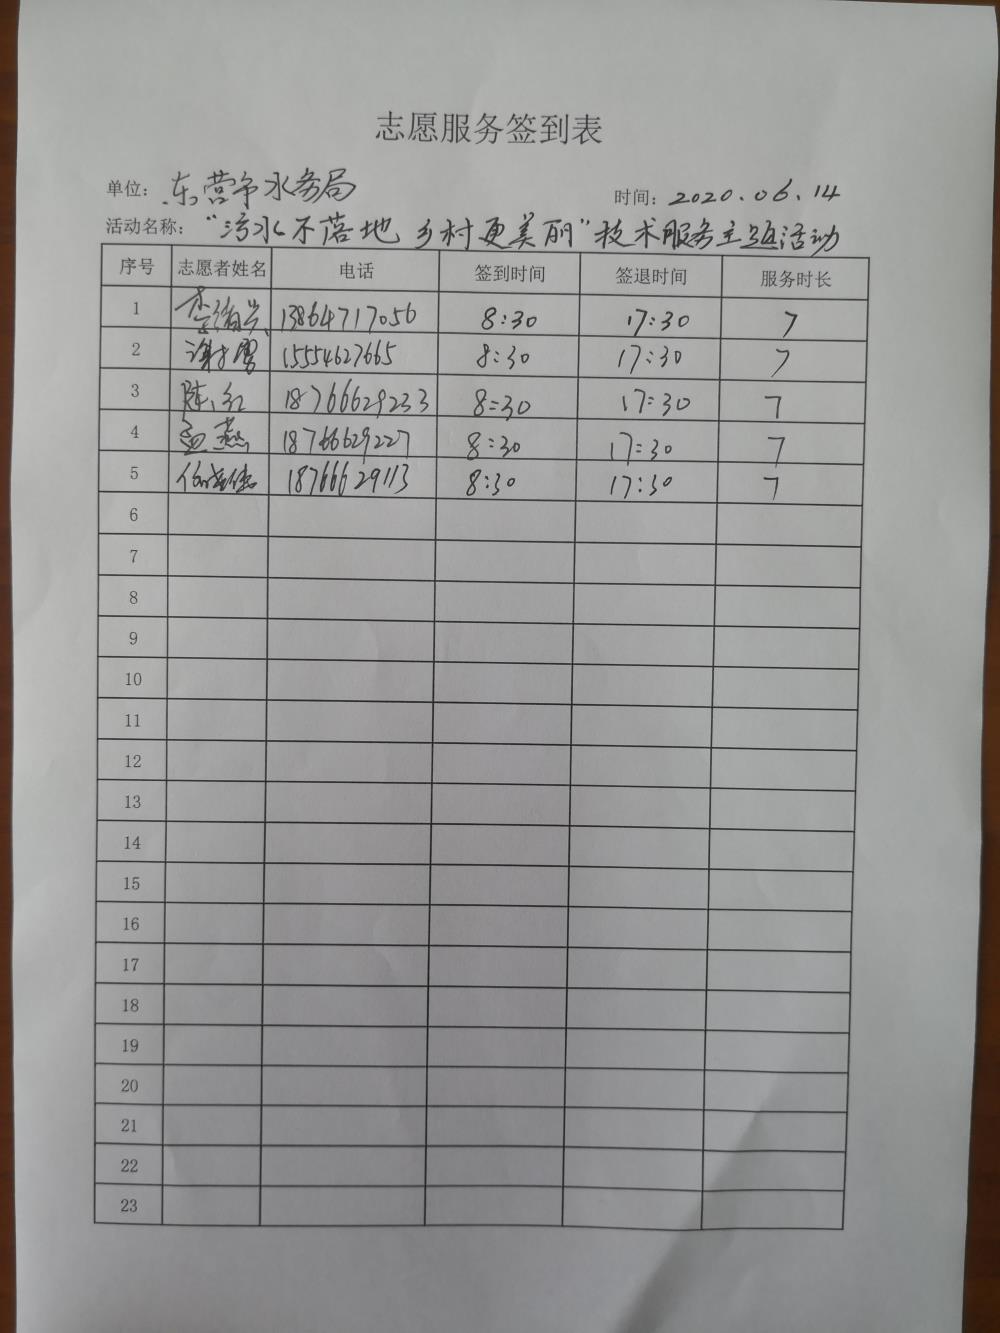 志愿服务签到表
单位：东营市水务局 时间：2020.06.14
活动名称：“污水不落地 乡村更美丽”技术服务主题活动
序号 志愿者姓名 电话 签到时间 签退时间 服务时长
1 李 13864717056 8:30 17:30 7
2 谢 15554627665 8:30 17:30 7
3 陈红 18766629233 8:30 17:30 7
4 孟燕 18766629227 8:30 17:30 7
5 18766629113 8:30 17:30 7
6
7
8
9
10
11
12
13
14
15
16
17
18
19
20
21
22
23